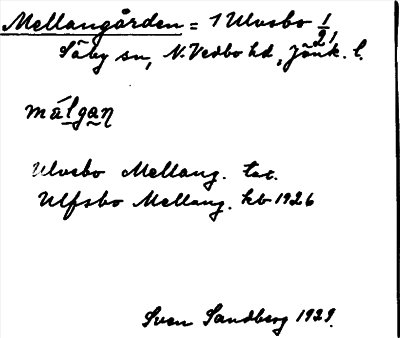 Mellangården = 1 Ulvsbo 1/2,
Säby sn, N. Vedbo hd, Jönk. l.
málgaŋ
Ulvsbo Mellang. tax.
Ulfsbo Mellang. kb 1926
Sven Sandberg 1929.